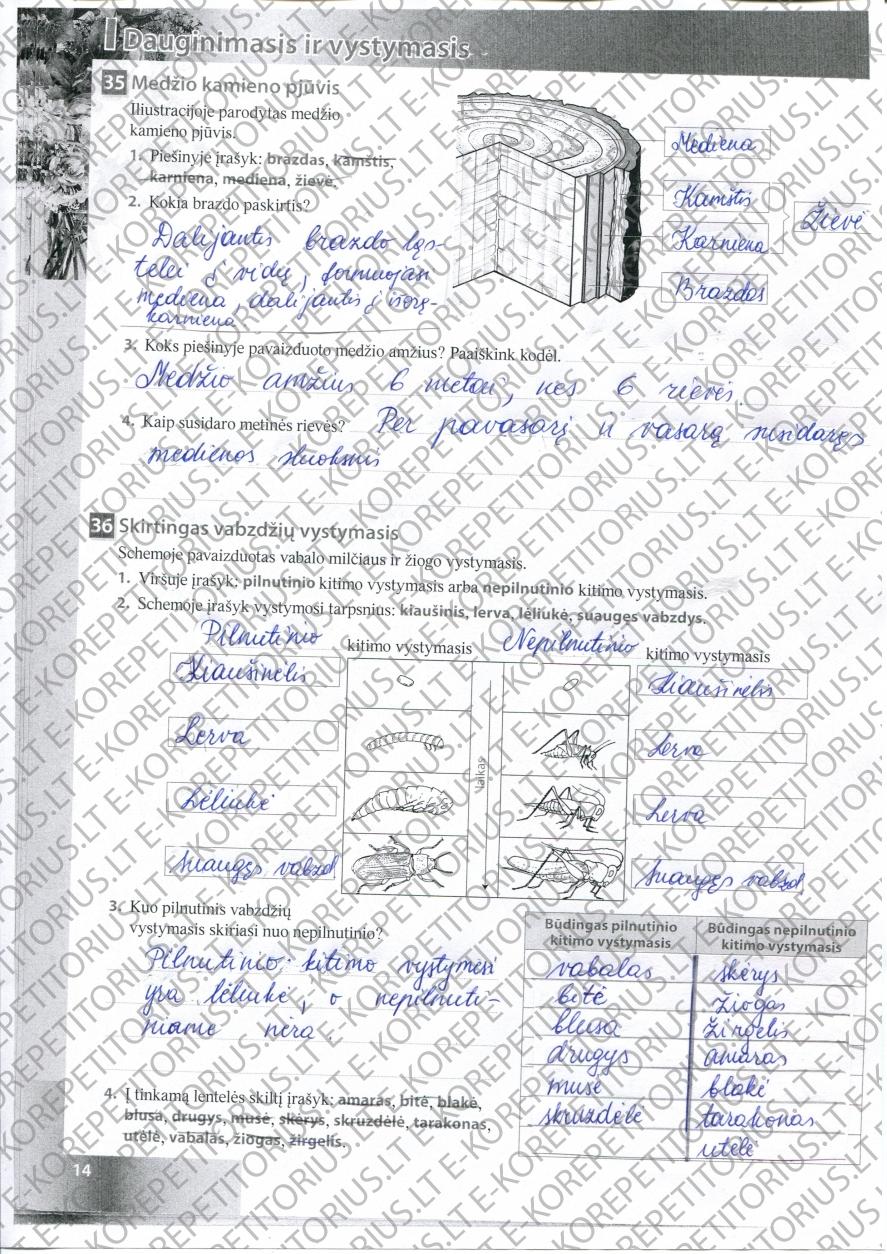 I Dauginimasis ir vystymasis
35 Medžio kamieno pjūvis
Iliustracijoje parodytas medžio
kamieno pjūvis.
1. Piešinyje įrašyk: brazdas, kamštis,
karniena, mediena, žievė.
2. Kokia brazdo paskirtis?
Dalijantis brazdo ląs-
telei į vidų, formuojasi
mediena, dalijantis į išorę-
karniena
Mediena
Kamštis
Karniena
Žievė
Brazdas
3. Koks piešinyje pavaizduoto medžio amžius? Paaiškink kodėl.
Medžio amžius 6 metai, nes 6 rievės.
4. Kaip susidaro metinės rievės? Per pavasarį ir vasarą susidaręs
medienos sluoksnis
36 Skirtingas vabzdžių vystymasis
Schemoje pavaizduotas vabalo milčiaus ir žiogo vystymasis.
1. Viršuje įrašyk: pilnutinio kitimo vystymasis arba nepilnutinio kitimo vystymasis.
2. Schemoje įrašyk vystymosi tarpsnius: kiaušinis, lerva, lėliukė, suaugęs vabzdys.
Pilnutinio kitimo vystymasis Nepilnutinio kitimo vystymasis
Kiaušinėlis Kiaušinėlis
Lerva Lerva
laikas
Lėliukė Lerva
Suaugęs vabzd Suaugęs vabzd
3. Kuo pilnutinis vabzdžių
vystymasis skiriasi nuo nepilnutinio?
Pilnutinio kitimo vystymesi
yra lėliukė, o nepilnuti-
niame nėra.
4. Į tinkamą lentelės skiltį įrašyk: amaras, bitė, blakė,
blusa, drugys, musė, skėrys, skruzdėlė, tarakonas,
utėlė, vabalas, žiogas, žirgelis.
Būdingas pilnutinio kitimo vystymasis Būdingas nepilnutinio kitimo vystymasis
vabalas skėrys
bitė žiogas
blusa žirgelis
drugys amaras
musė blakė
skruzdėlė tarakonas
utėlė
14
E-KOREPETITORIUS.LT